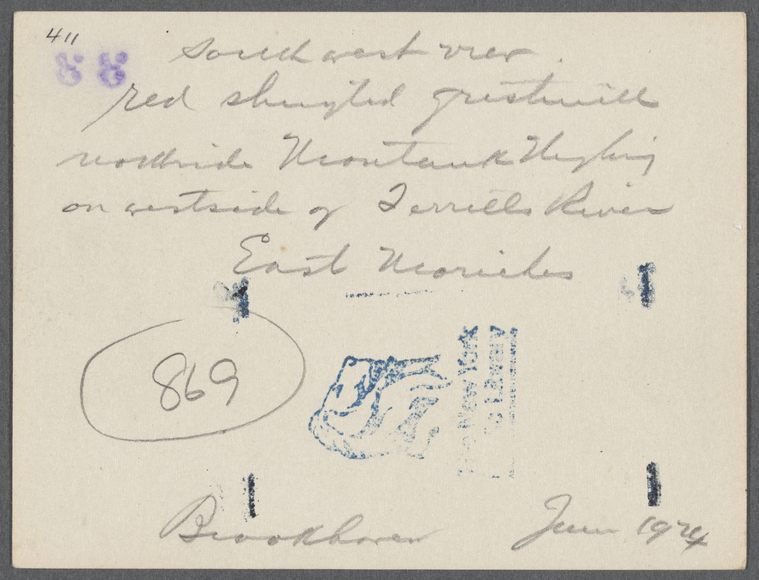 411
88
Southwest view.
red shingled gristmill
northside Montauk Highway
on westside of Terrells River
East Moriches
869
The New York
Public Library
Brookhaven June 1924